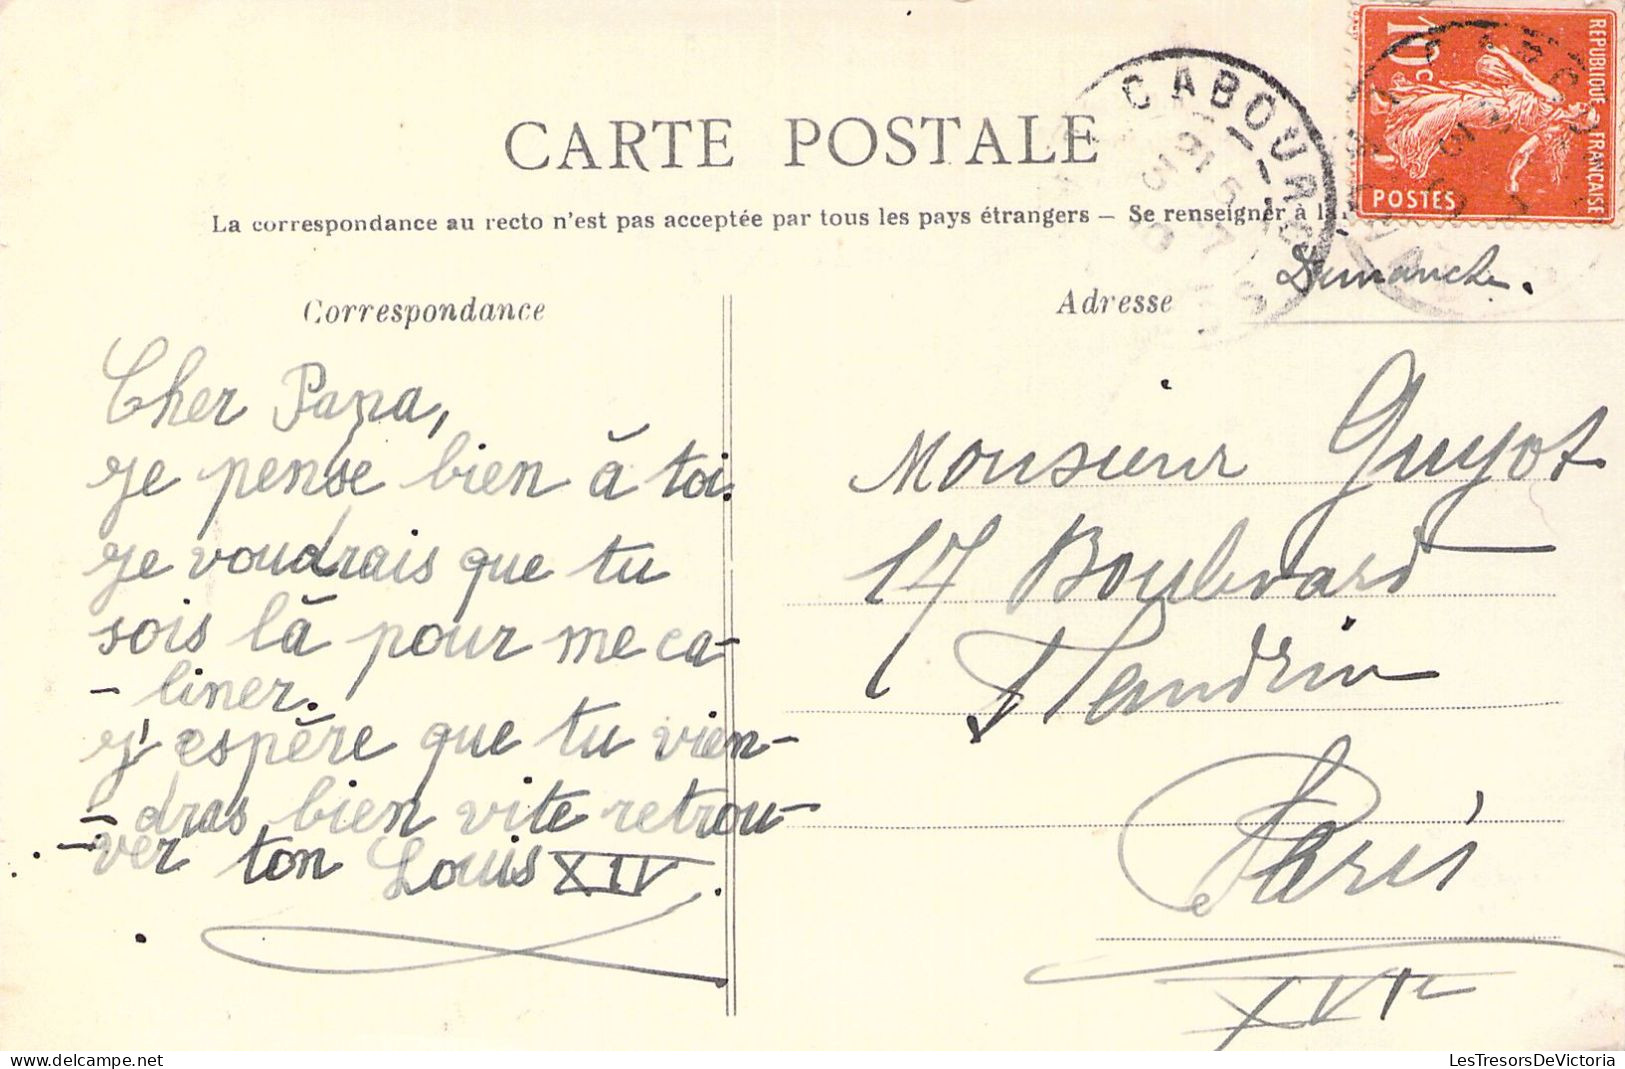 CARTE POSTALE
La correspondance au recto n'est pas acceptée par tous les pays étrangers – Se renseigner à la
CABOURG
10c
REPUBLIQUE FRANÇAISE
POSTES
Dimanche.
Correspondance
Cher Papa,
je pense bien à toi.
je voudrais que tu
sois là pour me ca-
- liner.
j'espère que tu vien-
- dras bien vite retrou-
- ver ton Louis XIV.
Adresse
Monsieur Guyot
17 Boulevard
Flandrin
Paris
XVIe
delcampe.net
LesTresorsDeVictoria